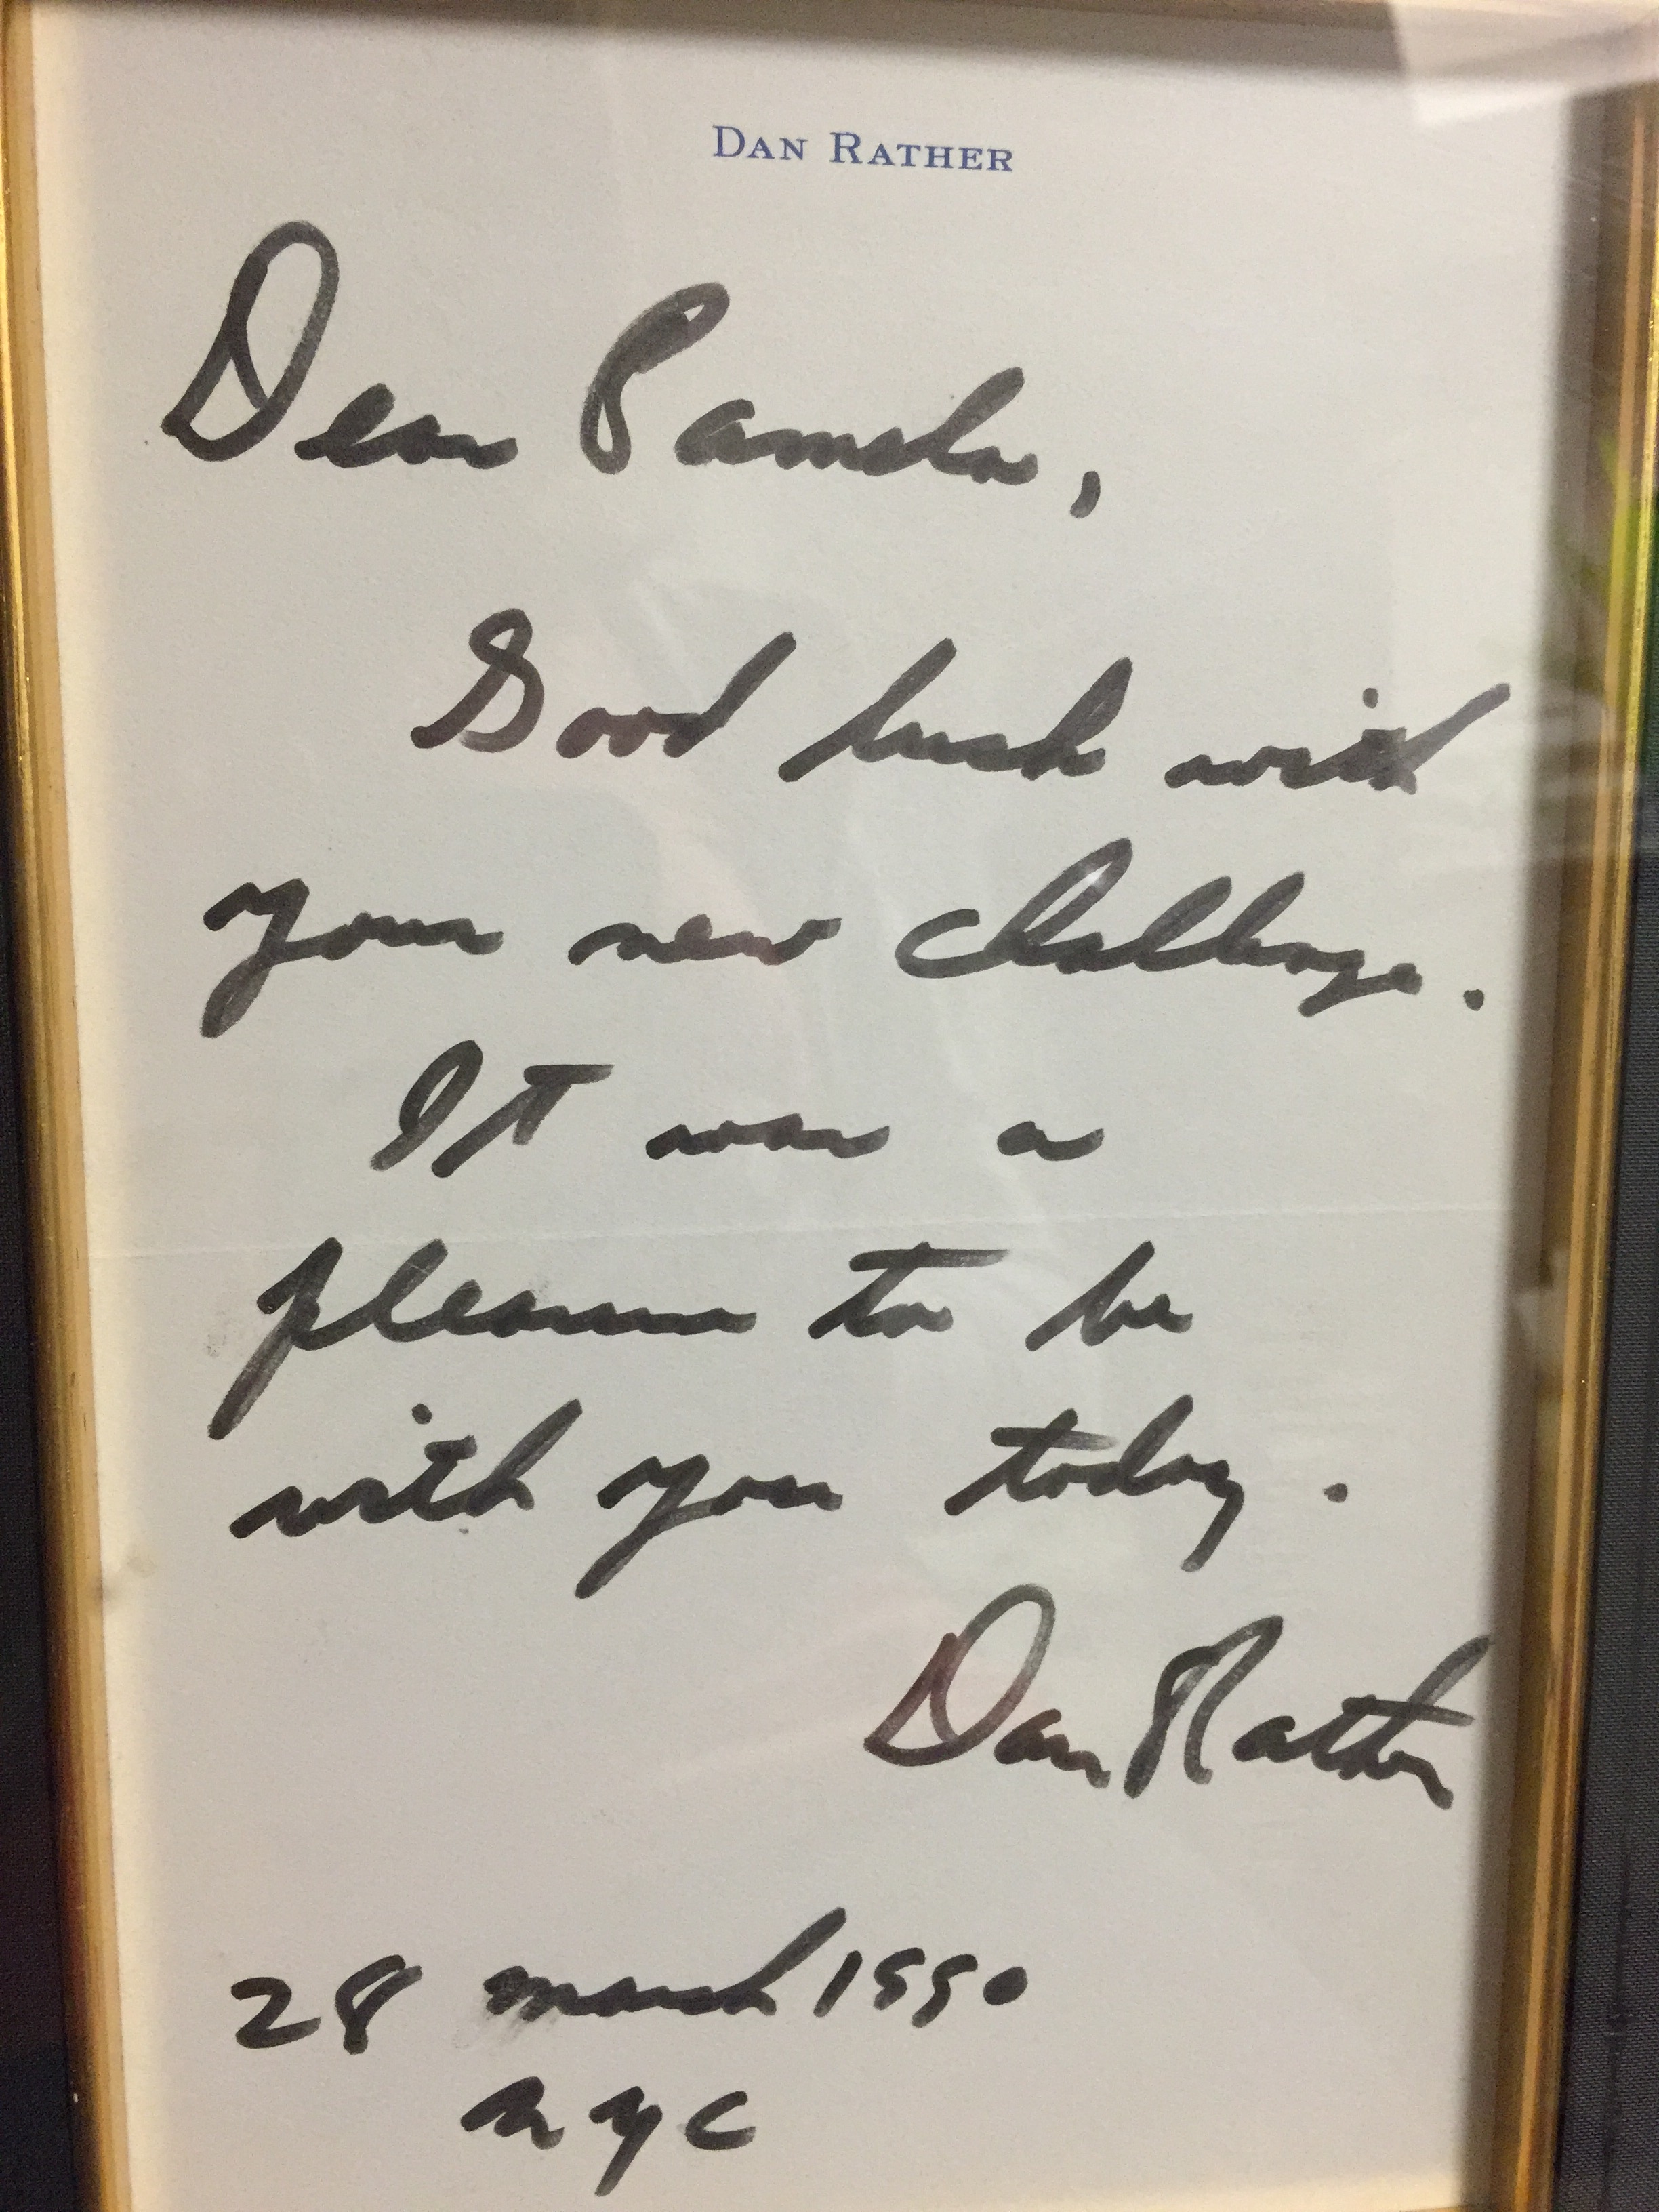 DAN RATHER
Dear Pamela,
Good luck with
your new challenge.
It was a
pleasure to be
with you today.
Dan Rather
28 march 1990
nyc